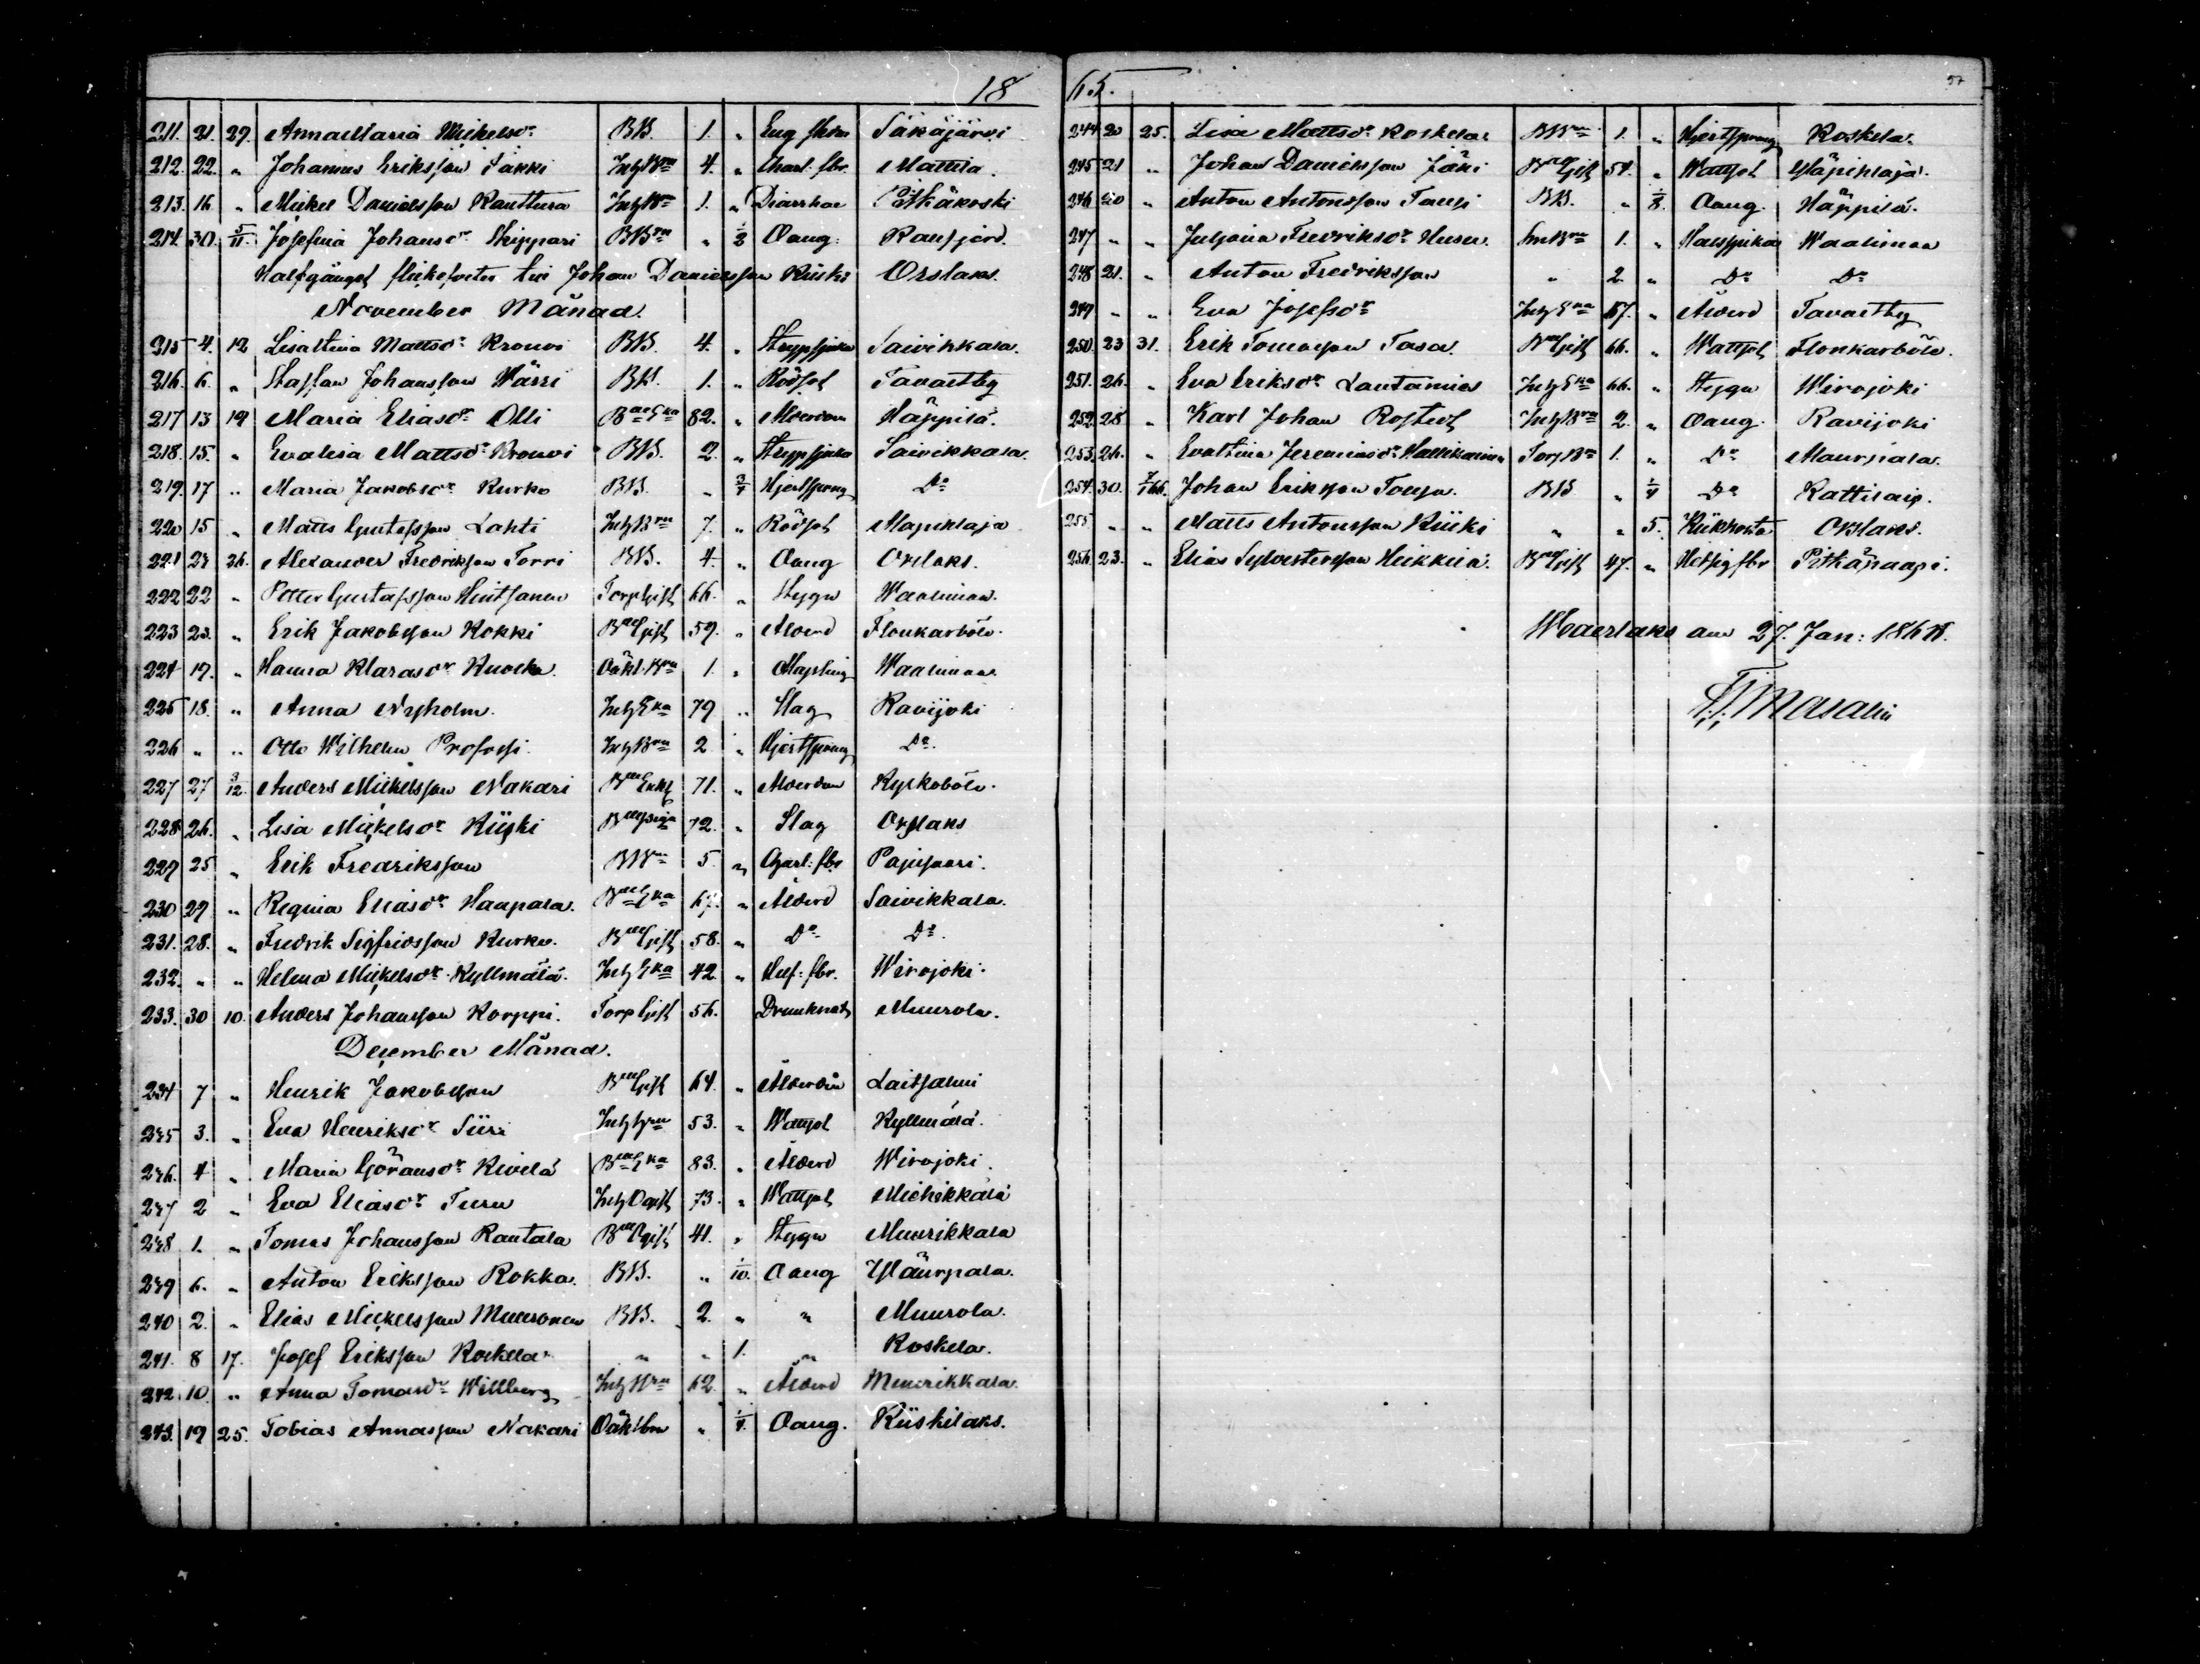 18
211. 21. 29. AnnaMaria Mickelsdr BB. 1. " Eng. Säkäjärvi
212. 22. " Johannes Eriksson Pakki InhyBrn 4. " Charl. fbr. Mattila.
213. 16. " Mickel Danielsson Ranttura InhyBrn 1. " Diarrhoe Pitkäkoski
214. 30. 5/11. Josefina Johansdr Skippari BBrn " 1/2 Oäng. Ransjerd.
Halfgånget flickefoster Johan Danielsson Kiiski Orslaks.
November Månad.
215 4. 12 Lisastina Mattsdr Kronvi BB. 4. " Strypsjuka Saivikkala.
216. 6. " Staffan Johansson Wärri BB. 1. " Rödsot Tavastby
217 13 19 Maria Eliasdr Olli 82. " Ålderdom Häppilä.
218. 15. " Evalisa Mattsdr Kronvi BB. 2. " Strypsjuka Saivikkala.
219. 17 " Maria Jakobsdr Kurko BB. " 3/4 Hjertsprång Do
220 15 " Matts Gustafsson Lahti InhyBrn 7. " Rödsot Mäpihlaja
221 23 26. Alexander Fredriksson Torri BB. 4. " Oäng Orslaks.
222 22 " Petter Gustafsson Hintsanen TorpGift 66. " Stygn Waalimaa.
223 23. " Erik Jakobsson Kokki BdeGift 59. " Ålderd Flonkarböle.
224 19. " Hanna Klarasdr Kuokka Oäkt.Brn 1. " Messling Waalimaa.
225 18. " Anna Nyholm. InhyEka 79 " Slag Ravijoki
226 " " Otto Wilhelm Profossi InhyBrn 2 " Hjertsprång Do.
227 27 3/12. Anders Mickelsson Nakari BdeEnkl 71. " Ålderdom Kyrkoböle.
228 26. " Lisa Mickelsdr Kiiski 72. " Slag Orslaks
229 25 " Erik Fredriksson BBrn 5. " Charl: fbr Pajusaari.
230 29. " Regina Eliasdr Haapala. BdeEka 67. " Ålderd Saivikkala.
231. 28. " Fredrik Sigfridsson Kurko. BdeGift 58. " Do Do.
232. " " Helena Mickelsdr Kyllmälä. InhyEka 42 " Nerf: fbr. Wirojoki.
233. 30 10. Anders Johansson Korppi. TorpGift 56. Drunknat Muurola.
December Månad.
234 7 " Henrik Jakobsson BdeGift 64. " Ålderdom Laitsalmi
235 3. " Eva Henriksdr Siiri 53. " Wattsot Kyllmälä.
236. 4 " Maria Göransdr Kivelä BdeEka 83. " Ålderd Wirojoki.
237 2 " Eva Eliasdr Turu InhyOgift 73. " Wattsot Miehikkälä
238 1. " Tomas Johansson Rantala BdeGift 41. " Stygn Muurikkala
239 6. " Anton Eriksson Rokka. BB. " 1/10. Oäng Ylä
240 2. " Elias Mickelsson Muuronen BB. 2. " " Muurola.
241. 8 17. Josef Eriksson Koskela. " " 1. " Koskela.
242. 10. " Anna Tomasdr Willberg 62. " Ålderd Muurikkala.
243. 19 25. Tobias Annasson Nakari Oäktbrn " 1/4. Oäng. Kiiskilaks.
65.
57
244 20 25. Lisa Mattsdr Koskela. BBrn 1. " Hjertsprång Koskela.
245 21 " Johan Danielsson Jäki BdeGift 54. " Wattsot Mäpihlaja.
246 20 " Anton Antonsson Taussi BB. " 1/8. Oäng. Häppilä.
247 " " Juljana Fredriksdr Husu. 1. " Halssjuka Waalimaa
248 21. " Anton Fredriksson " 2. " Do Do
249 " " Eva Josefsdr InhyEka 67. " Ålderd Tavastby
250. 23 31. Erik Tomasson Tasa. BdeGift 66. " Wattsot Flonkarböle.
251. 26. " Eva Eriksdr Lautamies InhyEka 66. " Stygn Wirojoki
252. 28 " Karl Johan Rostedt InhyBrn 2. " Oäng. Ravijoki
253. 26. " Evastina Jeremiasdr Hallikainen TorpBrn 1. " Do
254. 30. 7/1 66. Johan Eriksson BB " 1/4 Do Kattilais.
255 " " Matts Antonsson Kiiski " " 5. Kikhosta Orslaks.
256. 23. " Elias Sylvestersson Heikkilä. BdeGift 47. " Hetsig fbr Pitkäpaasi.
Wederlaks den 27. Jan: 186
Masalin